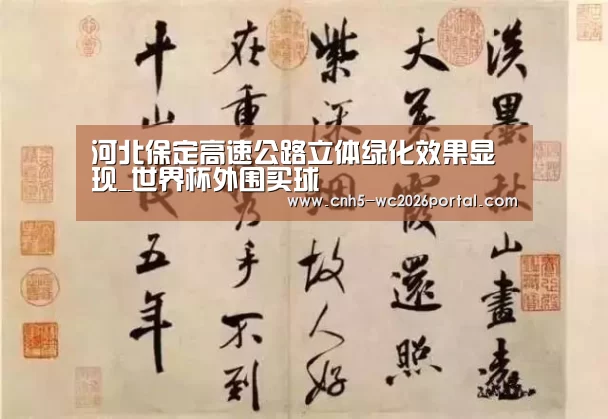 河北保定高速公路立体绿化效果显
现_世界杯外围买球
www.cnh5-wc2026portal.com
淡墨秋山畫遠
天暮霞還照
紫添烟故人好
在重手不到
平山五年